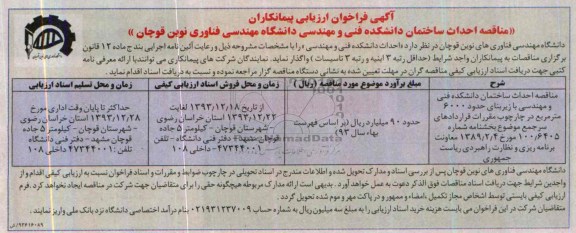 آگهی فراخوان ارزیابی پیمانکاران
«مناقصه احداث ساختمان دانشکده فنی و مهندسی دانشگاه مهندسی فناوری نوین قوچان»
دانشگاه مهندسی فناوری های نوین قوچان در نظر دارد «احداث دانشکده فنی و مهندسی» را با مشخصات مشروحه ذیل و رعایت آئین نامه اجرایی بند ج ماده ۱۲ قانون
برگزاری مناقصات به پیمانکاران واجد شرایط (حداقل رتبه ۳ ابنیه و رتبه ۳ تاسیسات) واگذار نماید. نمایندگان شرکت های پیمانکاری می توانند با ارائه معرفی نامه
کتبی جهت دریافت اسناد ارزیابی کیفی مناقصه گران در مهلت تعیین شده به نشانی دستگاه مناقصه گزار مراجعه نموده و نسبت به دریافت اسناد اقدام نمایند.
شرح
مبلغ برآورد موضوع مورد مناقصه (ریال)
زمان و محل فروش اسناد ارزیابی کیفی
زمان و محل تسلیم اسناد ارزیابی
مناقصه احداث ساختمان دانشکده فنی
و مهندسی با زیربنای حدود ۶۰۰۰
مترمربع در چارچوب مقررات قراردادهای
سرجمع موضوع بخشنامه شماره
۱۰۰/۶۴۰۵ مورخ ۱۳۸۹/۲/۴ معاونت
برنامه ریزی و نظارت راهبردی ریاست
جمهوری
حدود ۹۰ میلیارد ریال (بر اساس فهرست
بهاء سال ۹۳)
از تاریخ ۱۳۹۳/۱۲/۱۸ لغایت
۱۳۹۳/۱۲/۲۲ استان خراسان رضوی
- شهرستان قوچان - کیلومتر ۵ جاده
قوچان مشهد - دفتر فنی دانشگاه - تلفن
۴۷۳۴۴۰۰۱ - داخلی ۱۰۸
حداکثر تا پایان وقت اداری مورخ
۱۳۹۳/۱۲/۲۸ استان خراسان رضوی
- شهرستان قوچان - کیلومتر ۵ جاده
قوچان مشهد - دفتر فنی دانشگاه -
تلفن: ۴۷۳۴۴۰۰۱ - داخلی ۱۰۸
دانشگاه مهندسی فناوری های نوین قوچان پس از بررسی اسناد و مدارک تحویل شده و اطلاعات مندرج در اسناد تحویلی در چارچوب ضوابط و مقررات و اسناد فراخوان نسبت به ارزیابی کیفی اقدام و از
واجدین شرایط جهت دریافت اسناد مناقصات فوق الذکر دعوت به عمل خواهد آورد. بدیهی است ارائه مدارک مربوطه هیچگونه حقی را برای متقاضیان جهت شرکت در مناقصه ایجاد نخواهد کرد. فرم
ارزیابی کیفی بایستی توسط اشخاص مجاز تکمیل، امضاء و ممهور و در پاکت مهر و موم شده تحویل گردد.
متقاضیان شرکت در این فراخوان می بایست هزینه خرید اسناد ارزیابی را به مبلغ سه میلیون ریال به شماره حساب ۰۲۱۹۳۱۲۳۷۰۰۹ بنام درآمد اختصاصی دانشگاه نزد بانک ملی واریز نمایند.